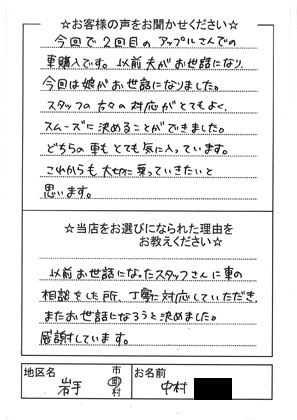 ☆お客様の声をお聞かせください☆
今回で2回目のアップルさんでの
車購入です。以前夫がお世話になり、
今回は娘がお世話になりました。
スタッフの方々の対応がとてもよく、
スムーズに決めることができました。
どちらの車もとても気に入っています。
これからも大切に乗っていきたいと
思います。
☆当店をお選びになられた理由を
お教えください☆
以前お世話になったスタッフさんに車の
相談をした所、丁寧に対応していただき、
またお世話になろうと決めました。
感謝しています。
地区名 岩手 市町村 お名前 中村